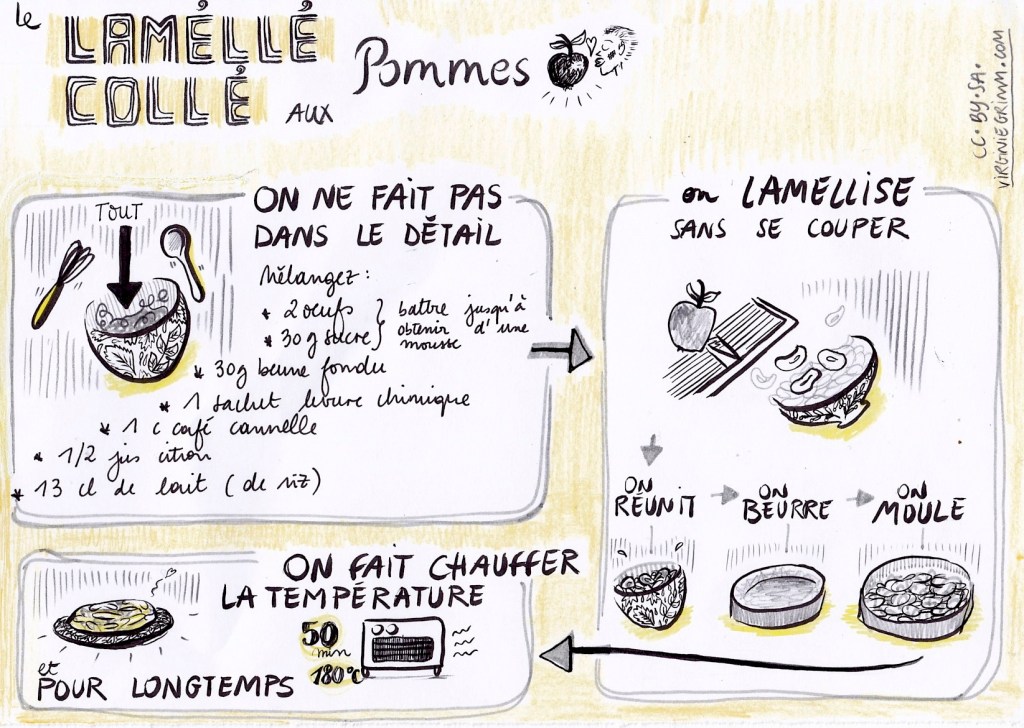 le
LAMÉLLÉ
COLLÉ AUX Pommes
CC•BY•SA•
VIRGINIEGRIMM.COM
TOUT
ON NE FAIT PAS
DANS LE DÉTAIL
Mélangez :
* 2 oeufs } battre jusqu'à
* 30g sucre } obtenir d'une
mousse
* 30g beurre fondu
* 1 sachet levure chimique
* 1 c café cannelle
* 1/2 jus citron
* 13 cl de lait (de riz)
on LAMELLISE
SANS SE COUPER
ON RÉUNIT
ON BEURRE
ON MOULE
ON FAIT CHAUFFER
LA TEMPÉRATURE
50
min
180°C
et
POUR LONGTEMPS